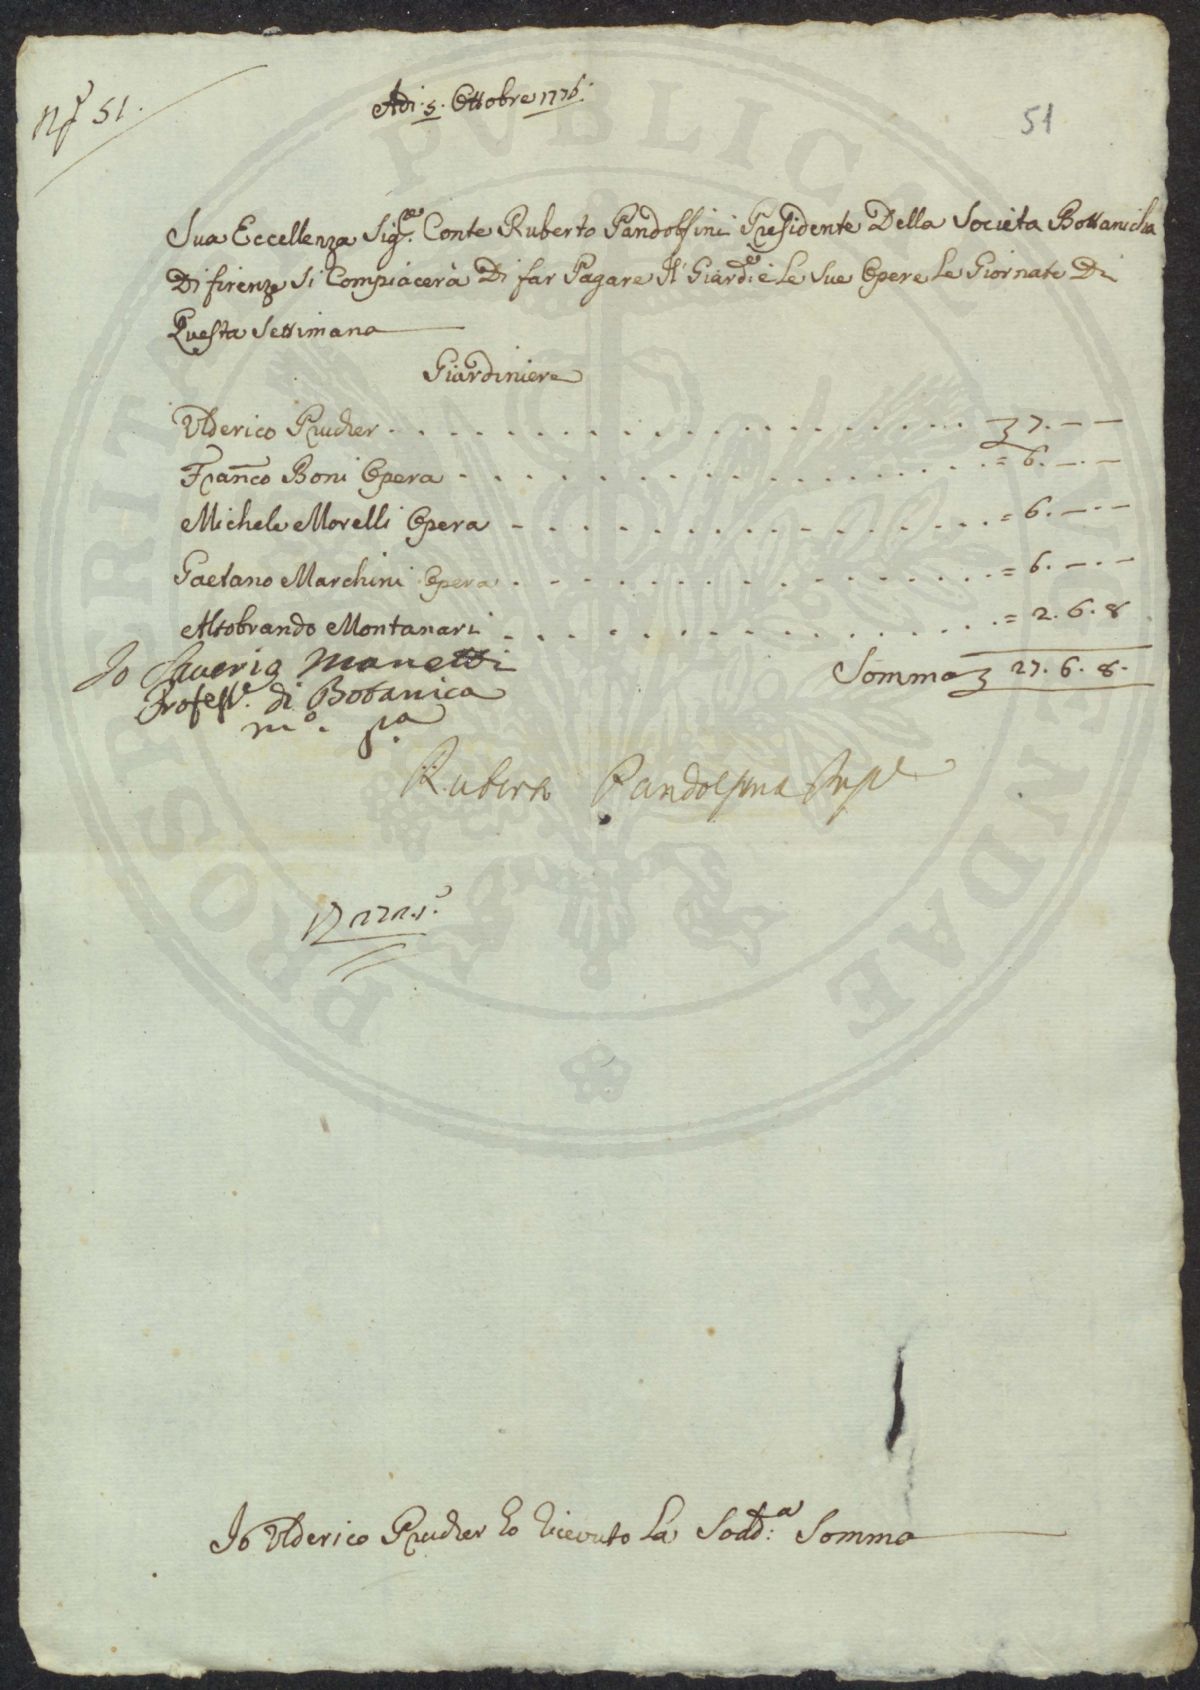 N.º 51.
Adi. 5. Ottobre 1776.
51
Sua Eccellenza Sig.re Conte Ruberto Pandolfini Presidente Della Societa Bottanicha
Di firenze Si Compiacerà Di far Pagare Il Giard.e e Le Sue Opere Le Giornate Di
Questa Settimana
Giardiniere
Ulderico Prucher . . . . . . . . . . . . 7. — —
Franco Boni Opera . . . . . . . . . . . = 6. — . —
Michele Morelli Opera . . . . . . . . . . = 6. — . —
Gaetano Marchini Opera . . . . . . . . . . = 6. — . —
Altobrando Montanari . . . . . . . . . . = 2. 6. 8
Somma 27. 6. 8.
Io Saverio Manetti
Profess.e di Botanica
m.o p.a
Ruberto Pandolfini
Io Ulderico Prucher ho ricevuto La Sodd.a Somma
PROSPERITATI PUBLICAE AUGENDAE